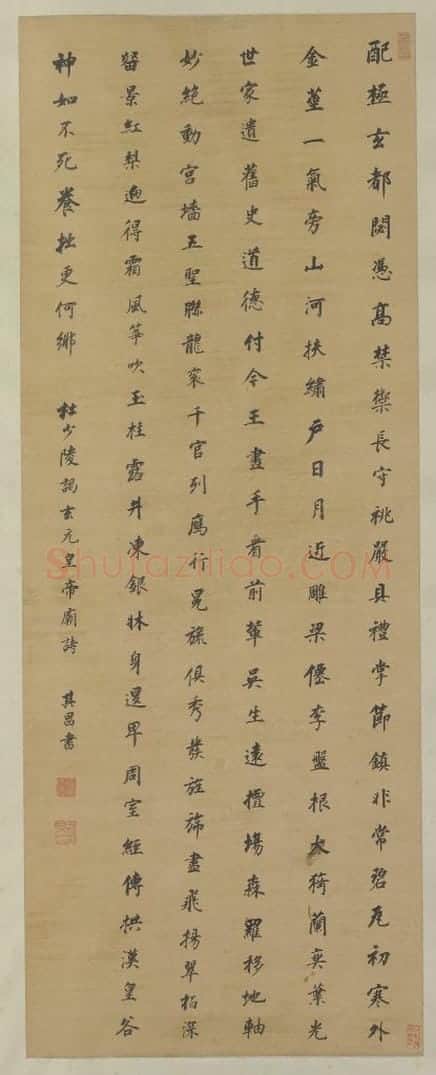 配極玄都閟憑高禁籞長守祧嚴具禮掌節鎮非常碧瓦初寒外
金莖一氣旁山河扶繡戶日月近雕梁僊李盤根大猗蘭奕葉光
世家遺舊史道德付今王畫手看前輩吳生遠擅場森羅移地軸
妙絕動宮墻五聖聯龍袞千官列鴈行冕旒俱秀發旌旆盡飛揚翠柏深
留景紅梨迥得霜風箏吹玉柱露井凍銀牀身退卑周室經傳拱漢皇谷
神如不死養拙更何鄉 杜少陵謁玄元皇帝廟詩 其昌書
Shufaziliao.COM